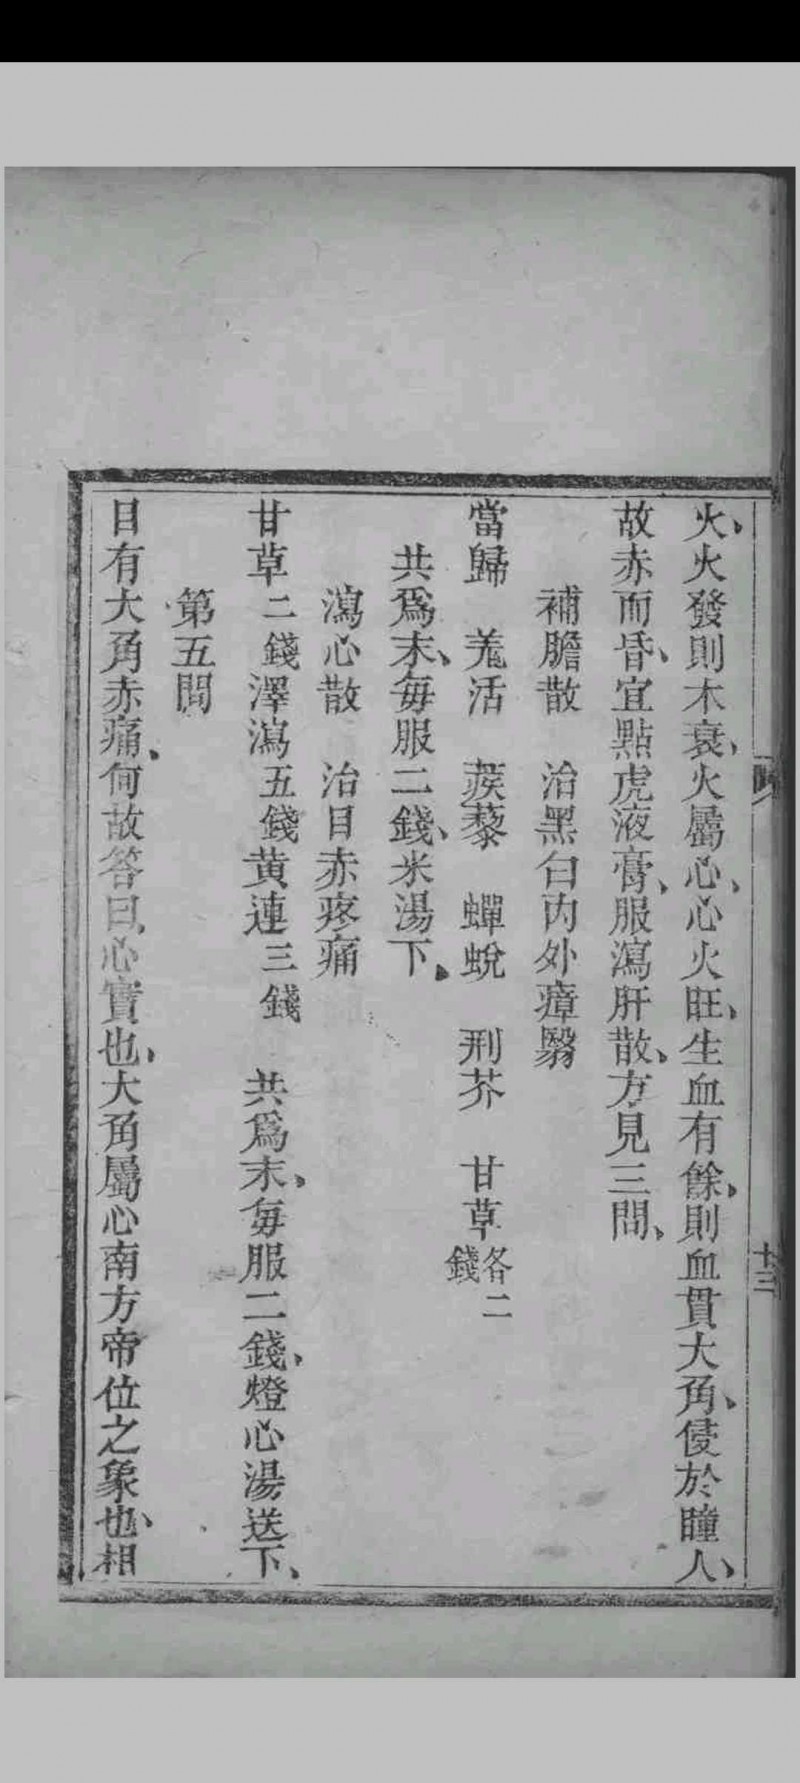 火、火發則木衰、火屬心、心火旺、生血有餘、則血貫大角、侵於瞳人、
故赤而昏、宜點虎液膏、服瀉肝散、方見三問、
補膽散　治黑白內外瘴翳
當歸　羗活　蒺藜　蟬蛻　荆芥　甘草各二錢
共爲末、每服二錢、米湯下、
瀉心散　治目赤疼痛
甘草二錢澤瀉五錢黃連三錢　共爲末、每服二錢、燈心湯送下、
第五問
目有大角赤痛、何故答曰、心實也、大角屬心南方帝位之象也、相
十三